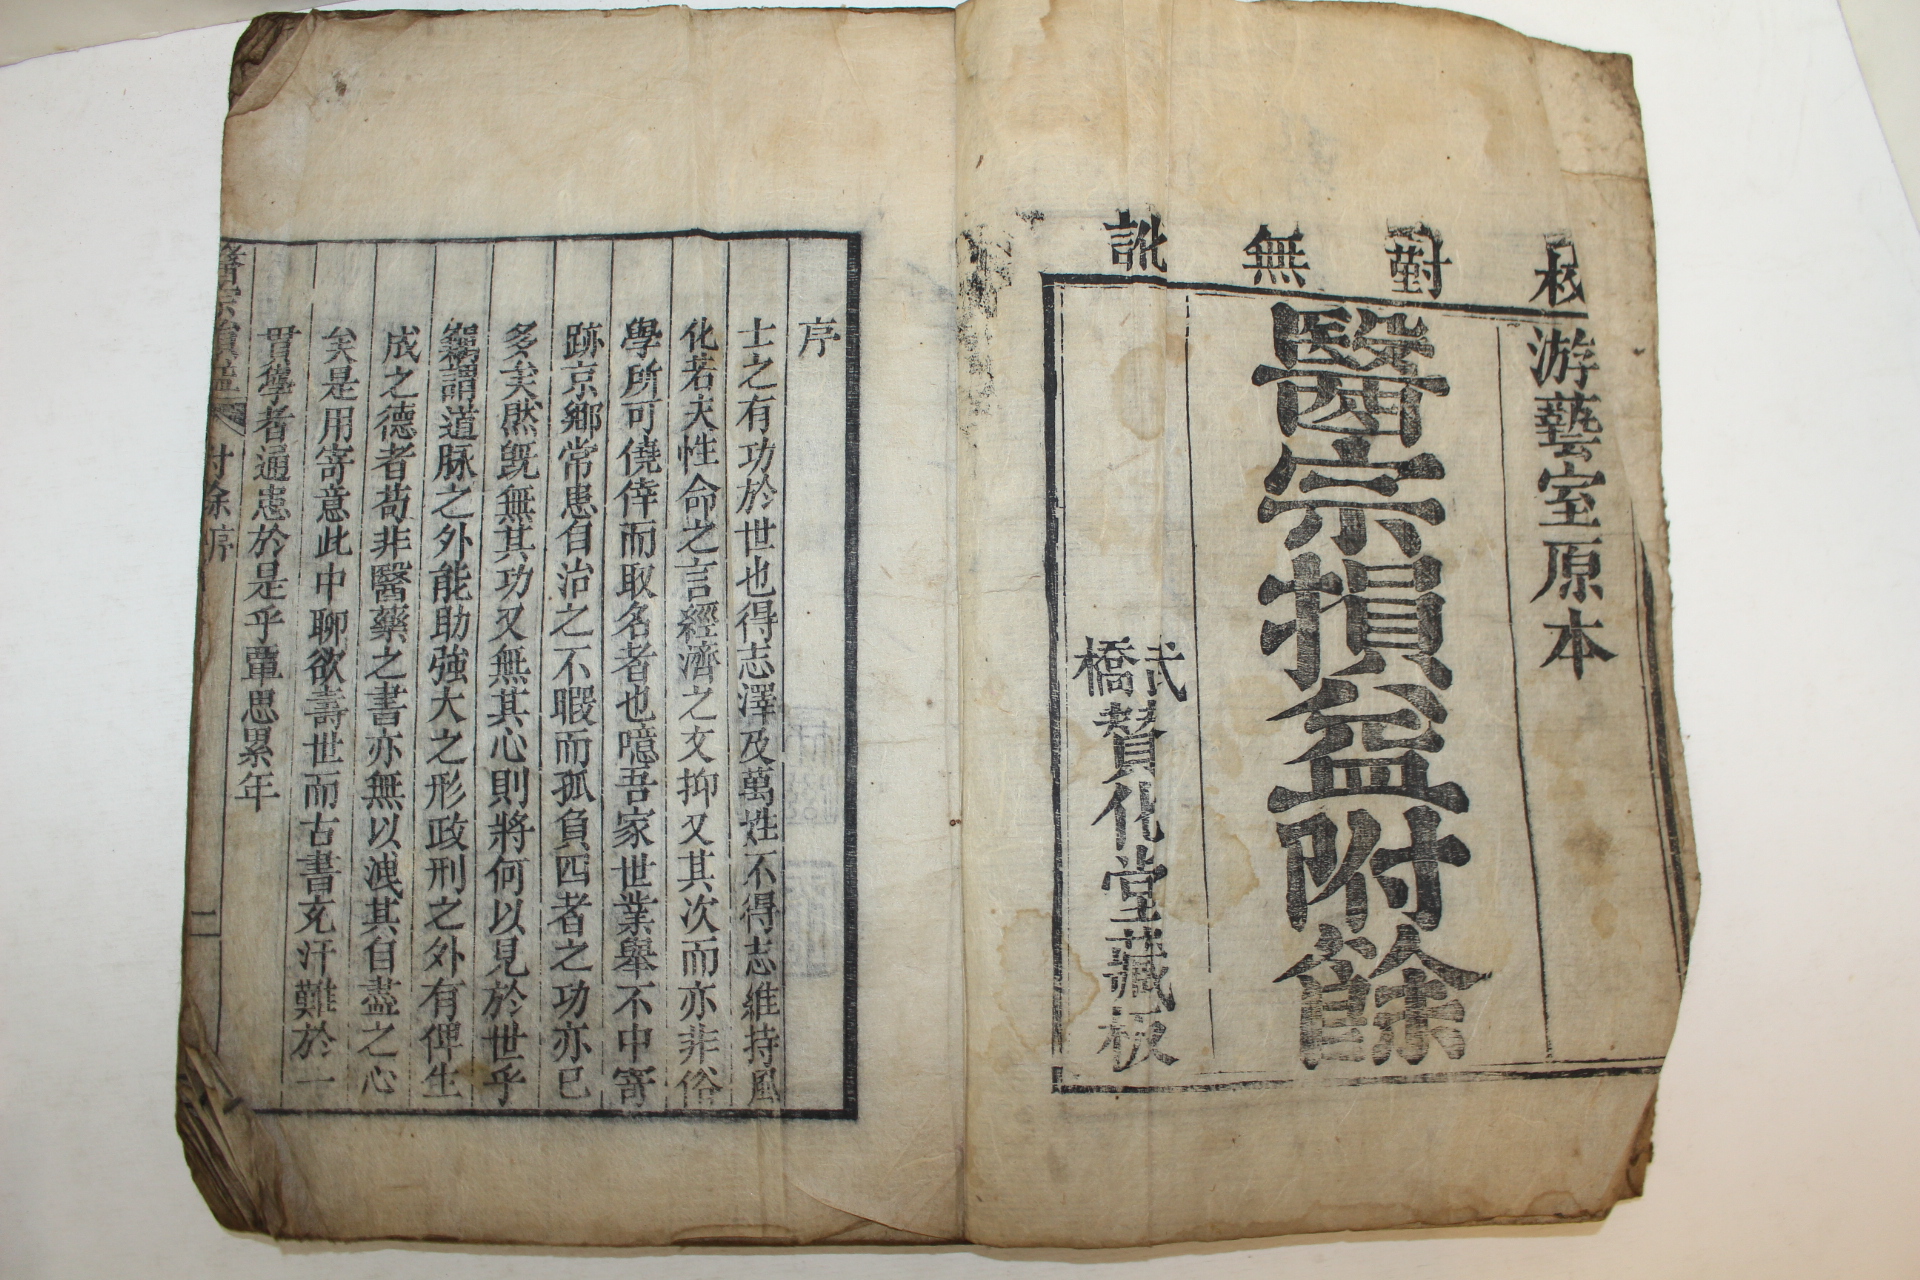 校對無訛
游藝室原本
醫宗損益附餘
武橋贊化堂藏板
序
士之有功於世也得志澤及萬姓不得志維持風
化若夫性命之言經濟之文抑又其次而亦非俗
學所可僥倖而取名者也噫吾家世業舉不中寄
跡京鄉常患自治之不暇而孤負四者之功亦已
多矣然旣無其功又無其心則將何以見於世乎
竊謂道脉之外能助強大之形政刑之外有俾生
成之德者苟非醫藥之書亦無以洩其自盡之心
矣是用寄意此中聊欲壽世而古書充汗難於一
貫學者通患於是乎覃思累年
醫宗損益
附餘序
二